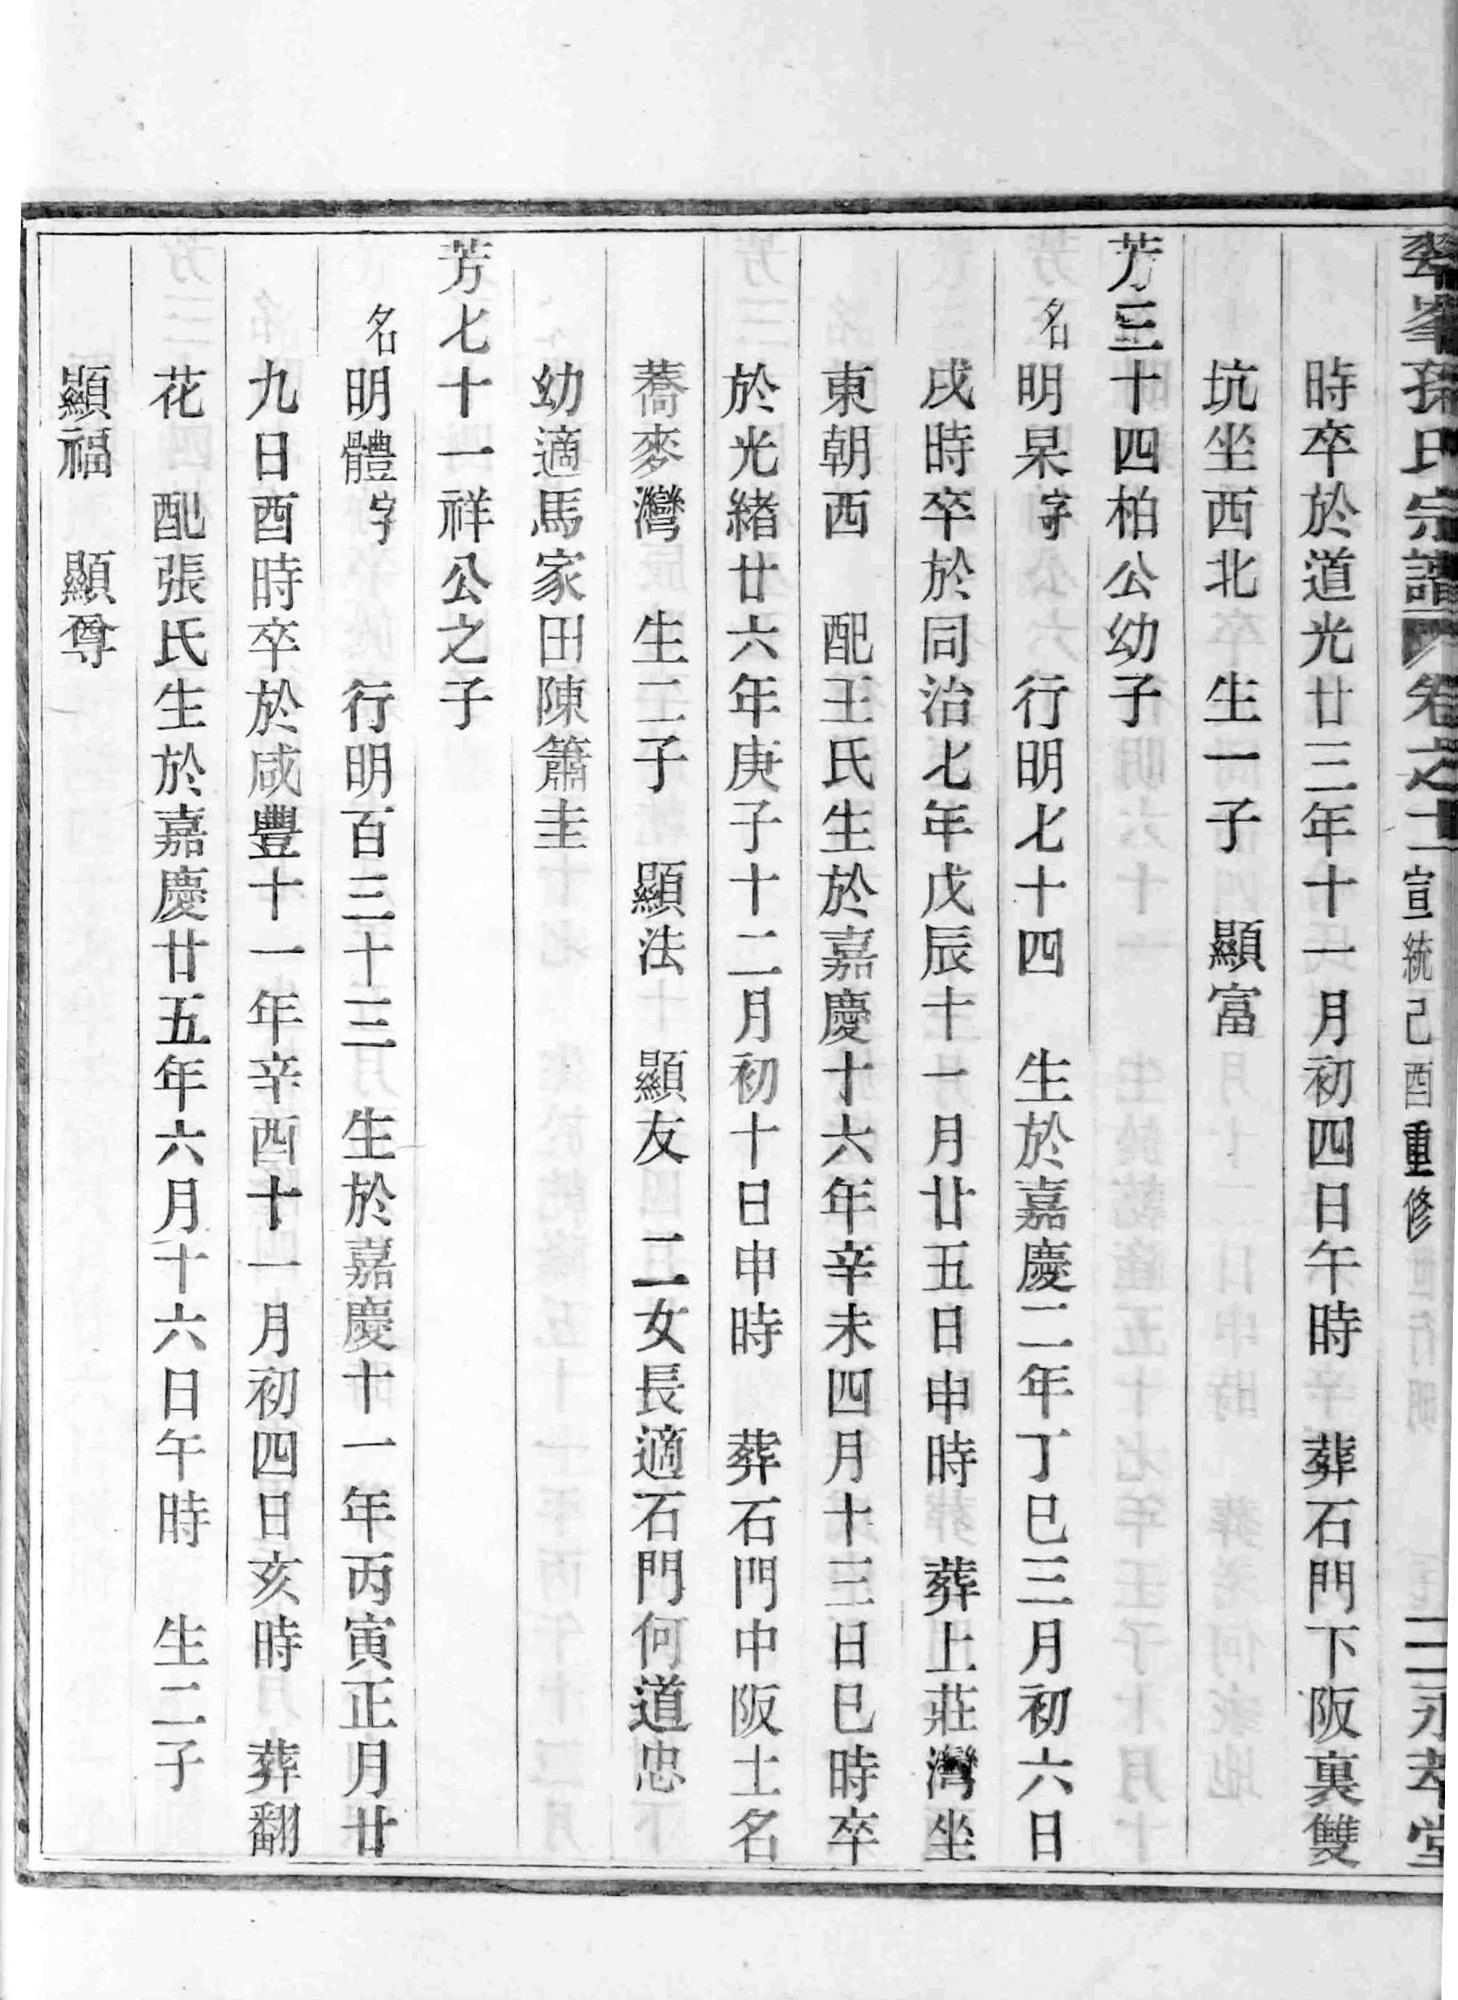 翠峯孫氏宗譜 卷之十二 宣統己酉重修 二 永萃堂
時卒於道光廿三年十一月初四日午時 葬石門下阪裏雙
坑坐西北 生一子 顯富
芳三十四柏公幼子
名明杲字 行明七十四 生於嘉慶二年丁巳三月初六日
戌時卒於同治七年戊辰十一月廿五日申時 葬上莊灣坐
東朝西 配王氏生於嘉慶十六年辛未四月十三日巳時卒
於光緒廿六年庚子十二月初十日申時 葬石門中阪土名
蕎麥灣 生二子 顯法 顯友 二女長適石門何道忠
幼適馬家田陳簫圭
芳七十一祥公之子
名明體字 行明百三十三 生於嘉慶十一年丙寅正月廿
九日酉時卒於咸豐十一年辛酉十一月初四日亥時 葬翻
花 配張氏生於嘉慶廿五年六月十六日午時 生二子
顯福 顯尊